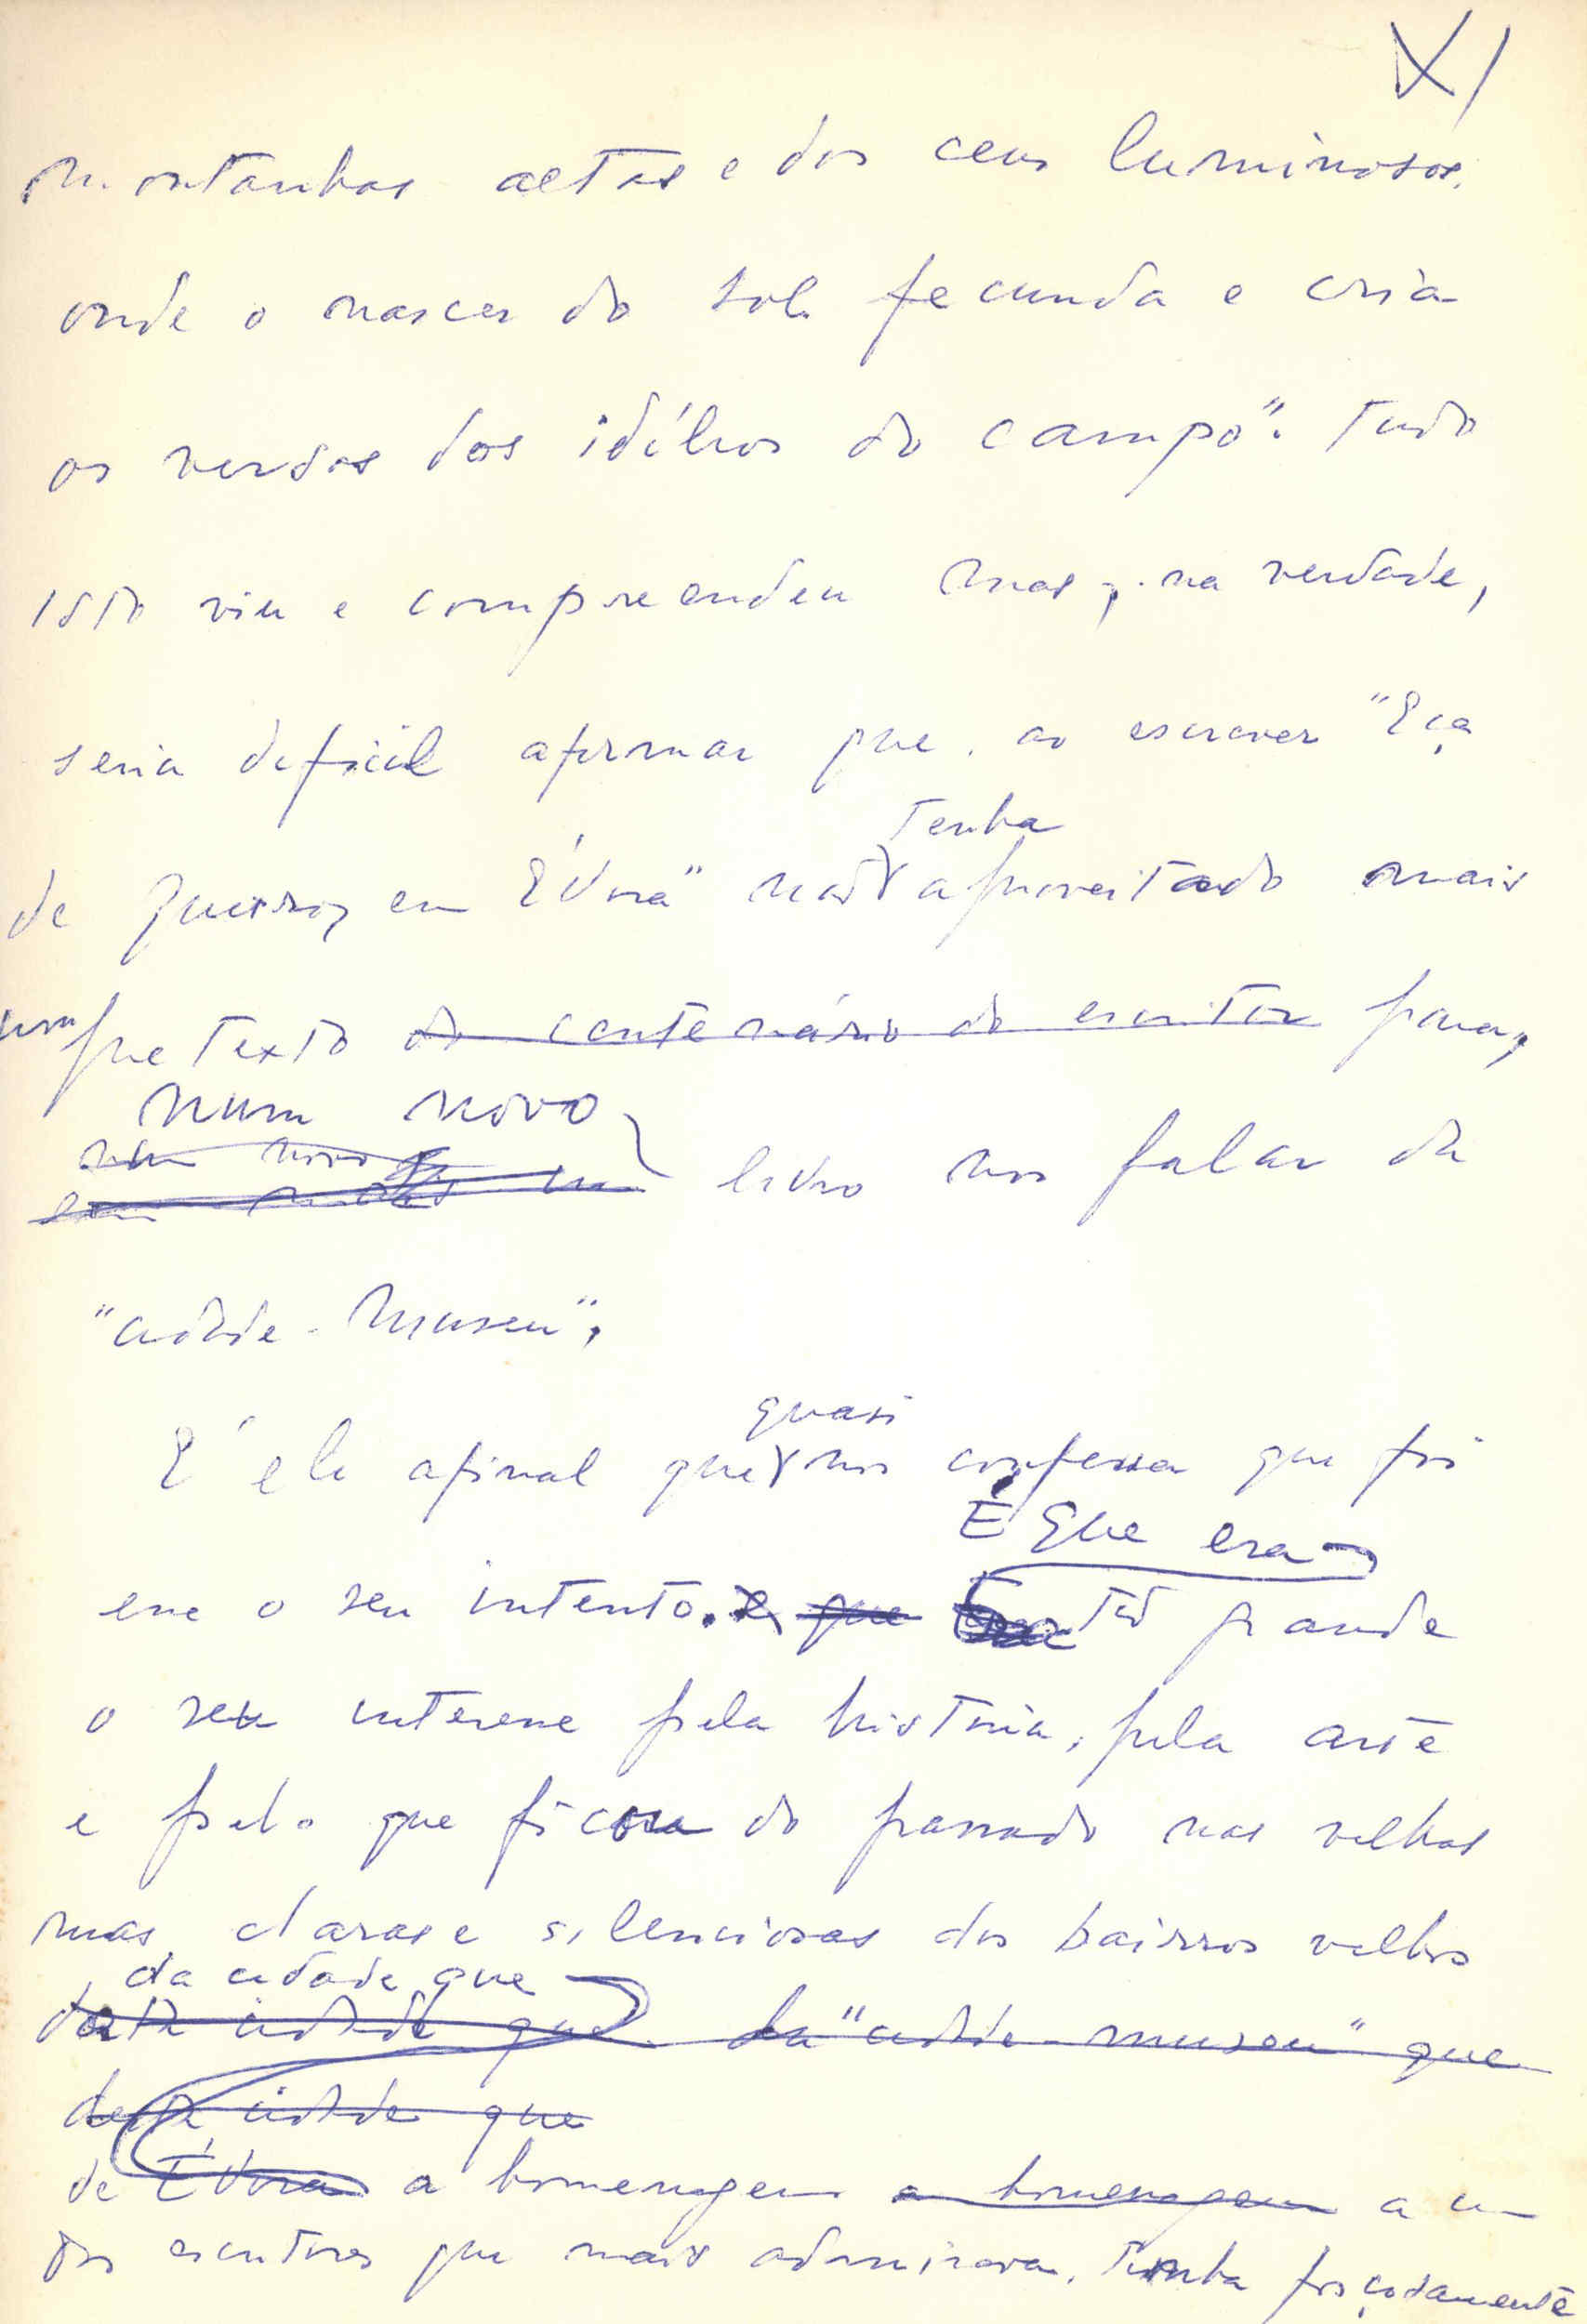 XI
montanhas altas e dos ceus luminosos.
onde o nascer do sol fecunda e cria
os versos dos idílios do campo". Tudo
isto viu e compreendeu mas, na verdade,
seria dificil afirmar que ao escrever "Eça
tenha
de Queiroz em Évora" não aproveitado mais
um pretexto do centenário do escritor para,
num novo
num novo
livro nos falar da
"cidade-museu".
quasi
É ele afinal que nos confessa que foi
É que era
esse o seu intento. e que tão grande
o seu interesse pela historia, pela arte
e pelo que ficou do passado nas velhas
ruas claras e silenciosas dos bairros velhos
da cidade que
desta cidade que da "cidade-museu" que
desta cidade que
de Évora a homenagem a homenagem a um
dos escritores que mais admirava. Tinha forçosamente